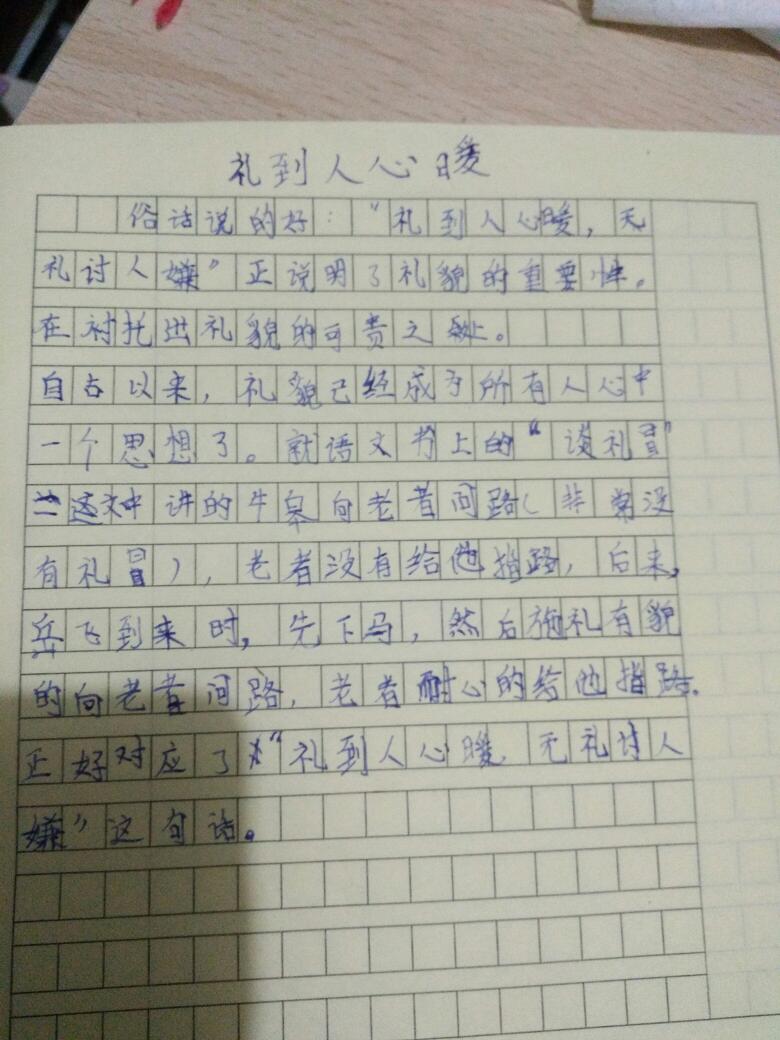 礼到人心暖
俗话说的好："礼到人心暖，无
礼讨人嫌"正说明了礼貌的重要性。
在衬托出礼貌的可贵之处。
自古以来，礼貌已经成为所有人心中
一个思想了。就语文书上的"谈礼冒"
这文中讲的牛皋向老者问路（非常没
有礼冒），老者没有给他指路，后来，
岳飞到来时，先下马，然后施礼有貌
的向老者问路，老者耐心的给他指路.
正好对应了"礼到人心暖，无礼讨人
嫌"这句话。